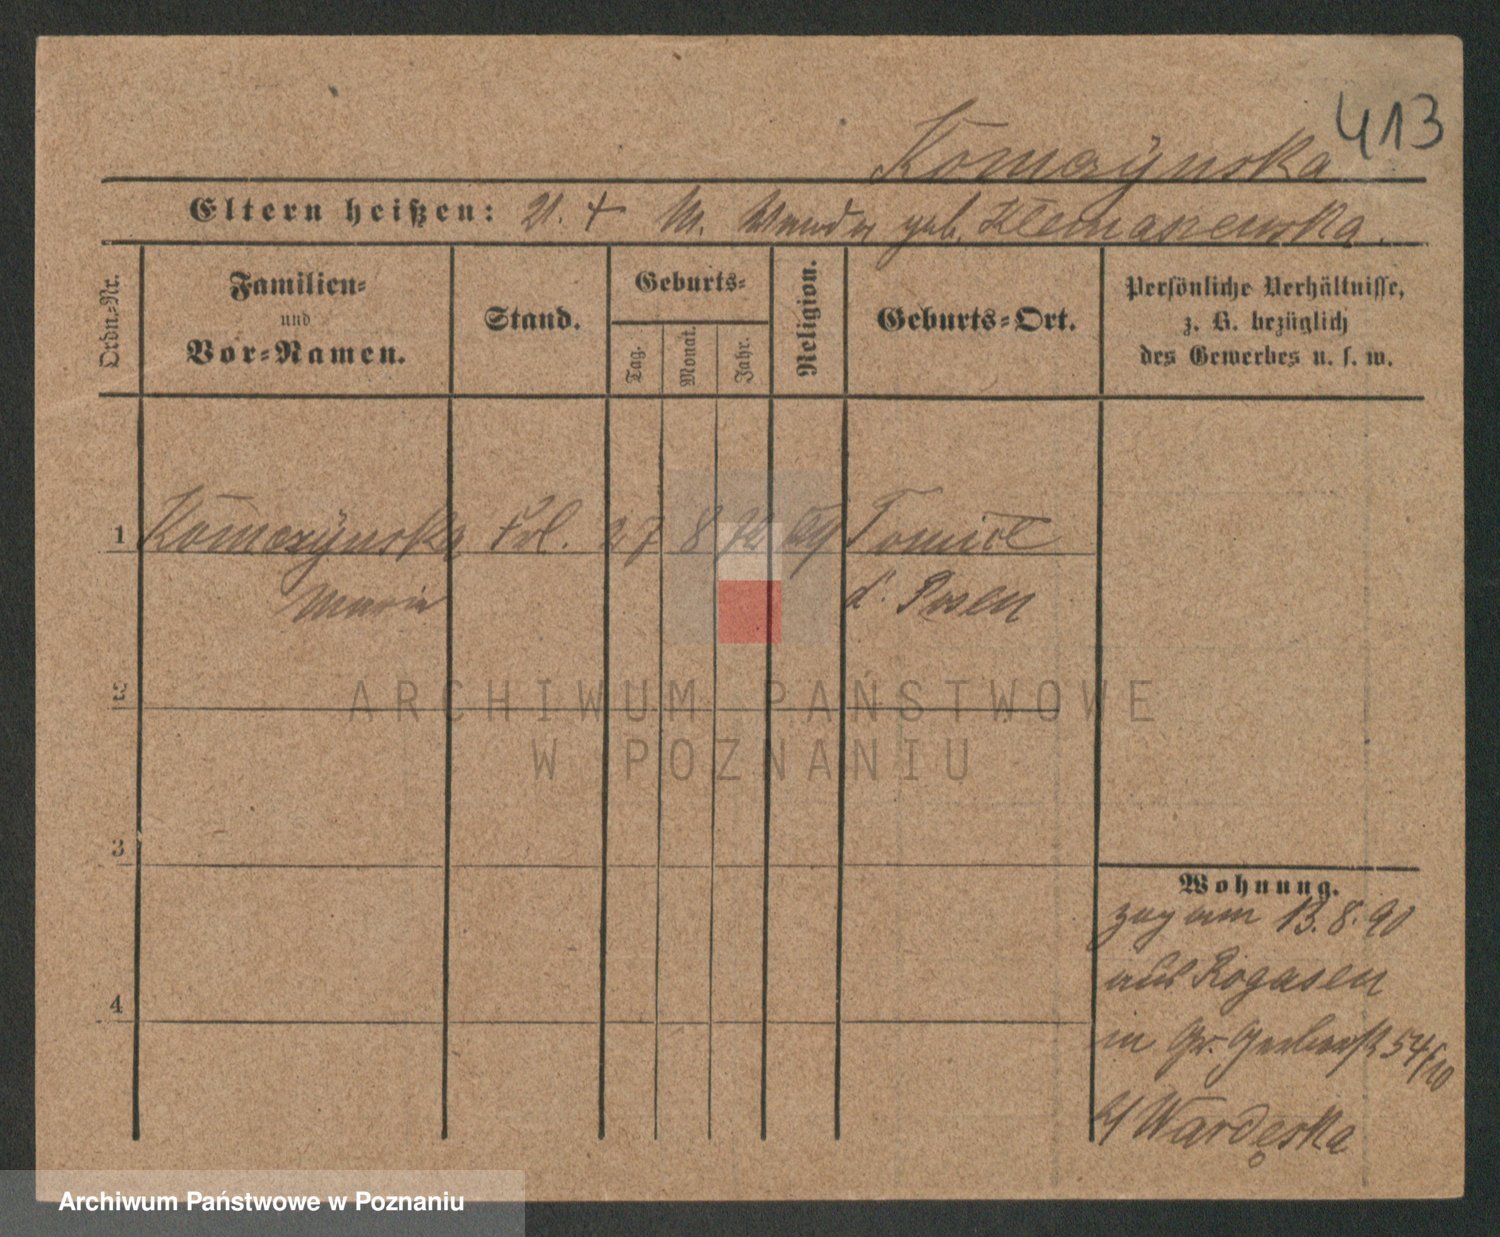 413
Komczynska
Eltern heißen: V. + M. geb. Klemaszewska.
Ordn.-Nr.
Familien-
und
Vor-Namen.
Stand.
Geburts-
Tag.
Monat.
Jahr.
Religion.
Geburts-Ort.
Persönliche Verhältnisse,
z. B. bezüglich
des Gewerbes u. s. w.
1 Komczynska Frl. 27 8 72 Tomice
Marie d. Posen
2
ARCHIWUM PAŃSTWOWE
W POZNANIU
3
4
Wohnung.
zog am 13.8.90
aus Rogasen
in Gr. Gerberstr 54/
b/ Wardęska
Archiwum Państwowe w Poznaniu